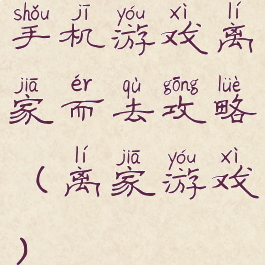 shǒu jī yóu xì lí
手机游戏离
jiā ér qù gōng lüè
家而去攻略
lí jiā yóu xì
(离家游戏
)